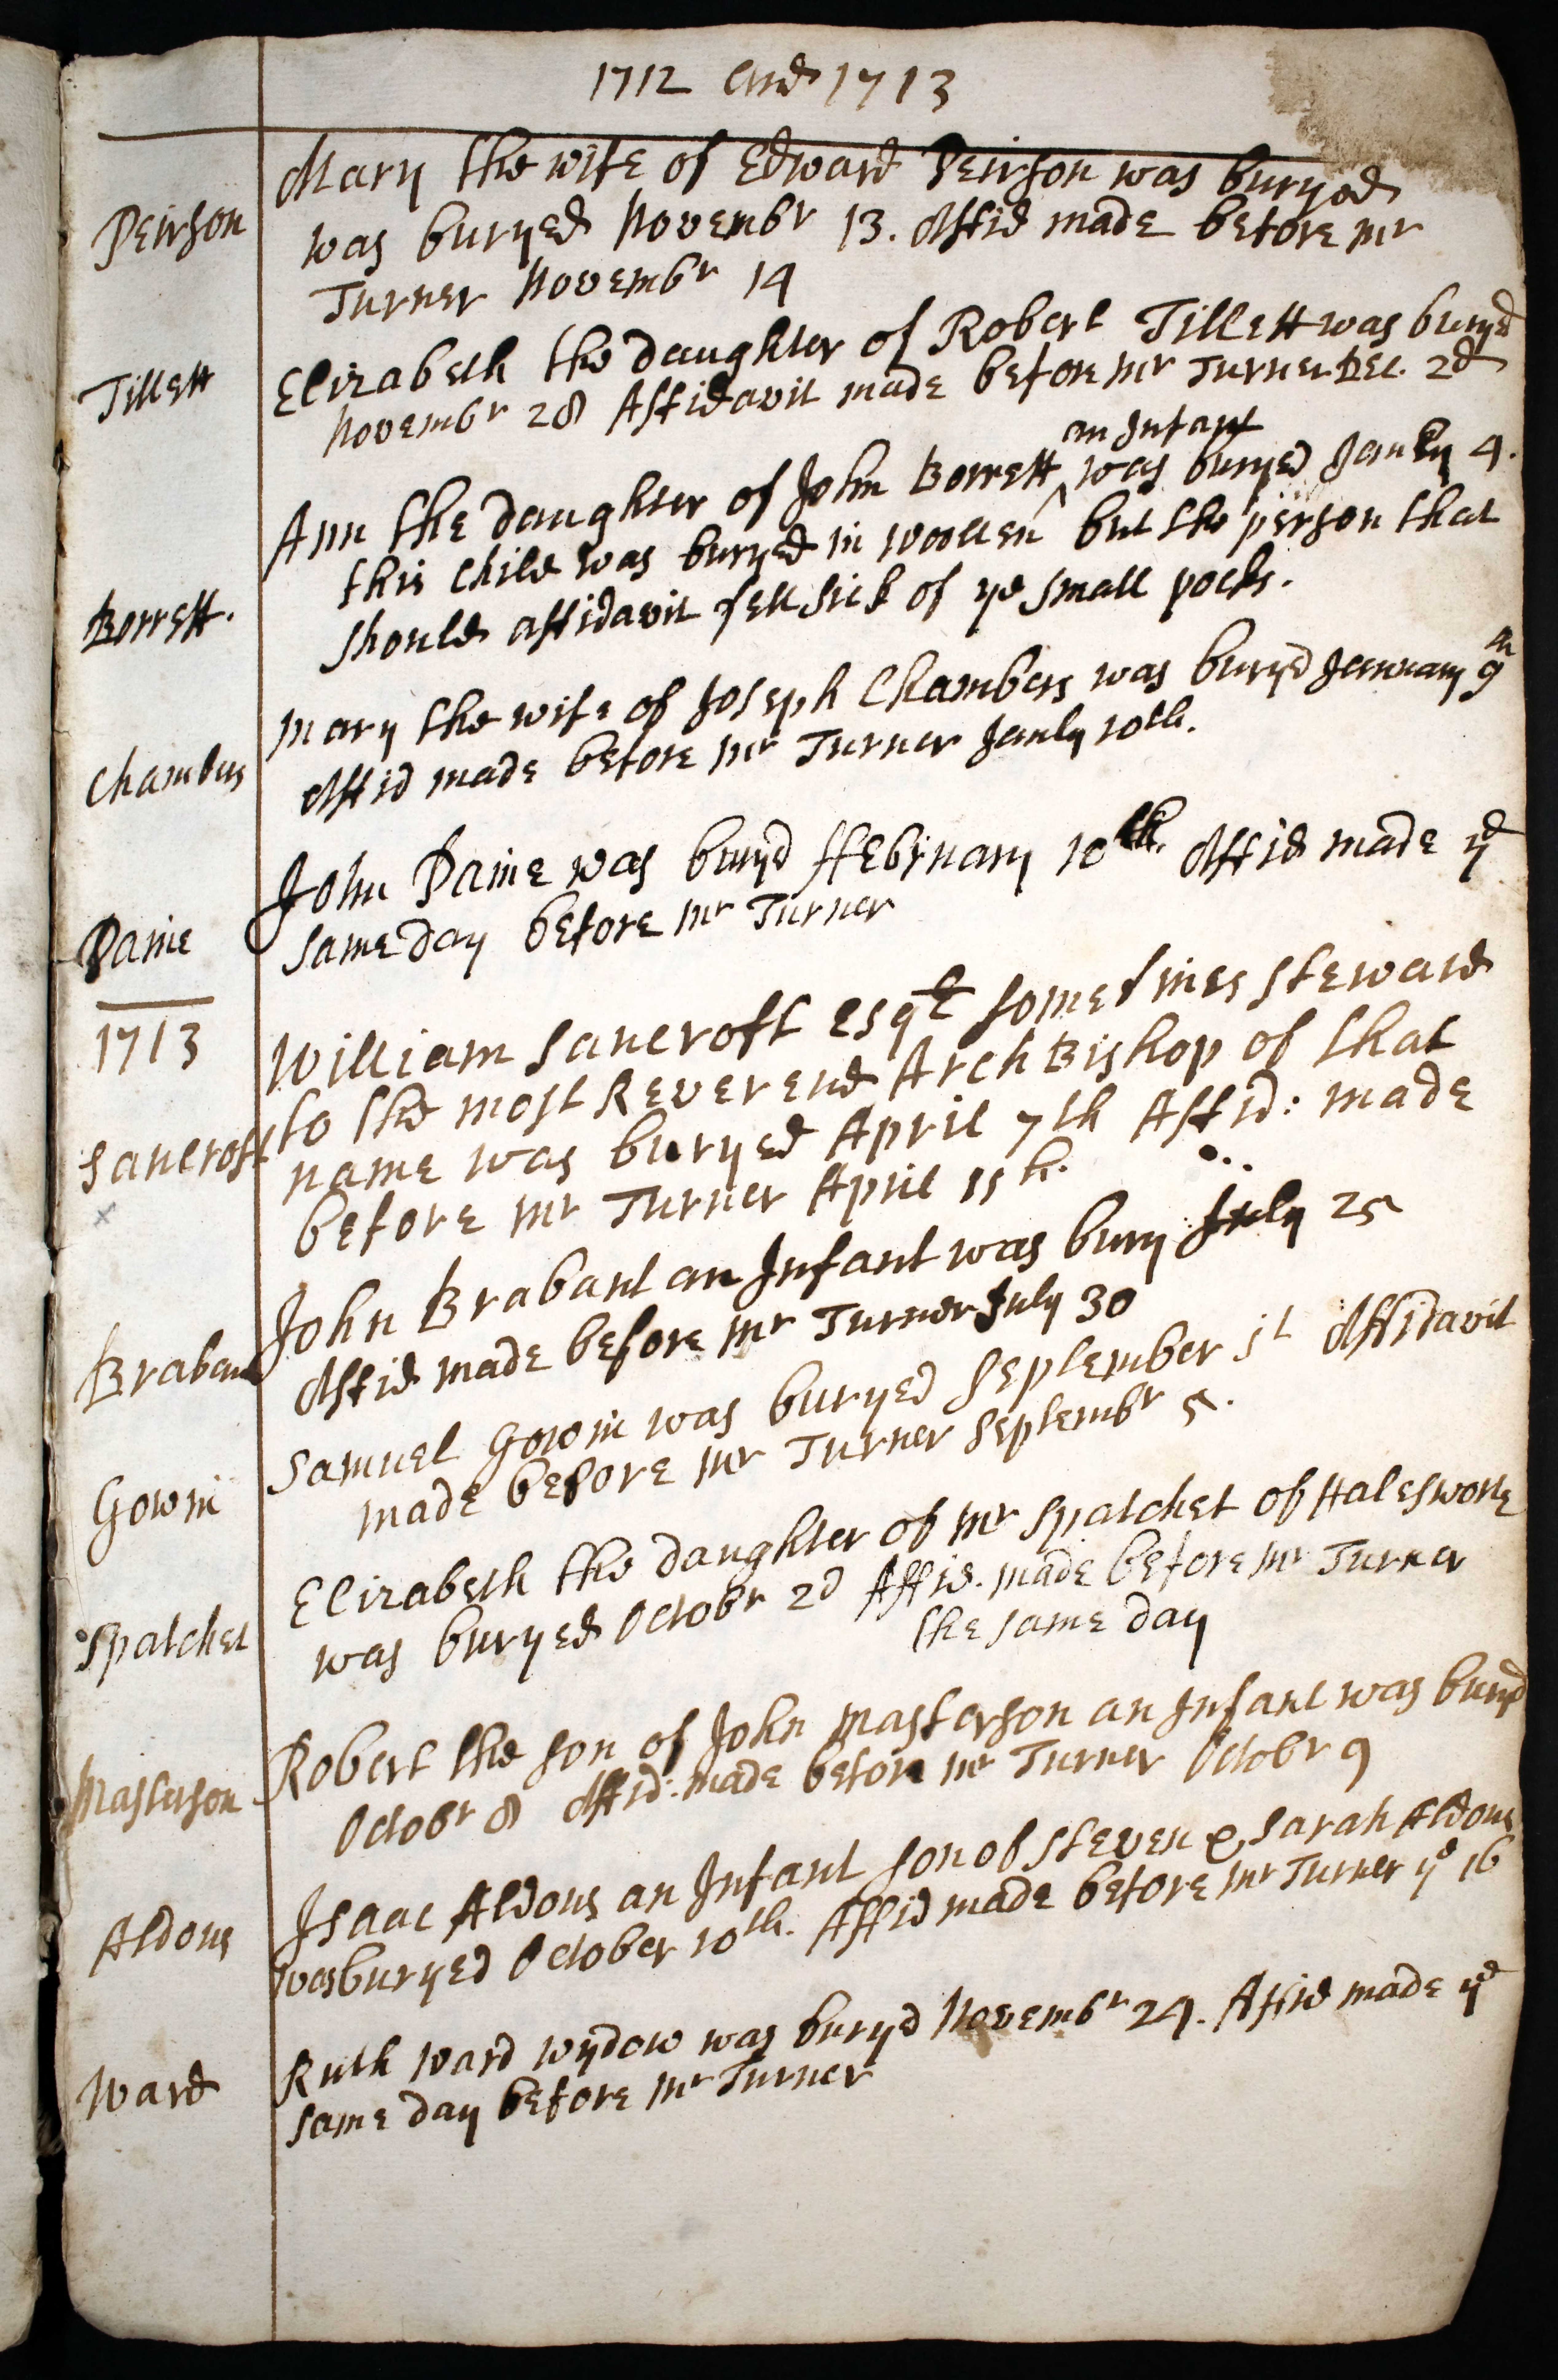 1712 and 1713
Peirson
Mary the wife of Edward Peirson was buryed
was buryed Novembr 13. Affid made before mr
Turner Novembr 14
Tillett
Elizabeth the daughter of Robert Tillett was buryd
Novembr 28 Affidavit made before mr Turner Dec. 2d
an Infant
Borrett.
Ann the daughter of John Borrett ^ was buryed Janry 4.
this child was buryed in woollen but the person that
should affidavit fell sick of ye small pocks.
Chambers
Mary the wife of Joseph Chambers was buryd January 9th
Affid made before mr Turner Janly 10th.
Paine
John Paine was buryd ffebruary 10th. Affid made ye
same day before mr Turner
1713
Sancroft
William Sancroft Esqr sometimes steward
to the most Reverend Arch Bishop of that
name was buryed April 7th Affid: made
before mr Turner April 11th.
Braband
John Brabant an Infant was bury July 25
Affid made before mr Turner July 30
Gowin
Samuel Gowin was buryed September 1t Affidavit
made before mr Turner Septembr 5.
Spatchet
Elizabeth the daughter of mr Spatchet of Halesworte
was buryed Octobr 2d Affid. made before mr Turner
the same day
Masterson
Robert the son of John Masterson an Infant was buryd
Octobr 8 Affid: made before mr Turner Octobr 9
Aldous
Isaac Aldous an Infant son of Steven & Sarah Aldous
was buryed October 10th. Affid made before mr Turner ye 16
Ward
Ruth Ward wydow was buryd Novembr 24. Affid made ye
same day before mr Turner